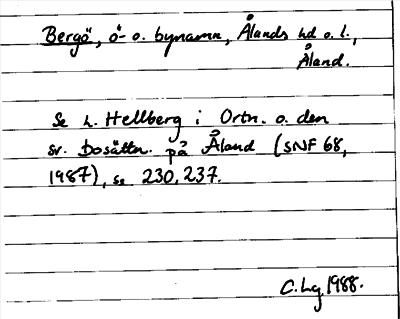 Bergö, ö- o. bynamn, Ålands hd o. l.,
Åland.
Se L. Hellberg i Ortn. o. den
sv. bosättn. på Åland (SNF 68,
1987), s. 230, 237.
C. Lg 1988.